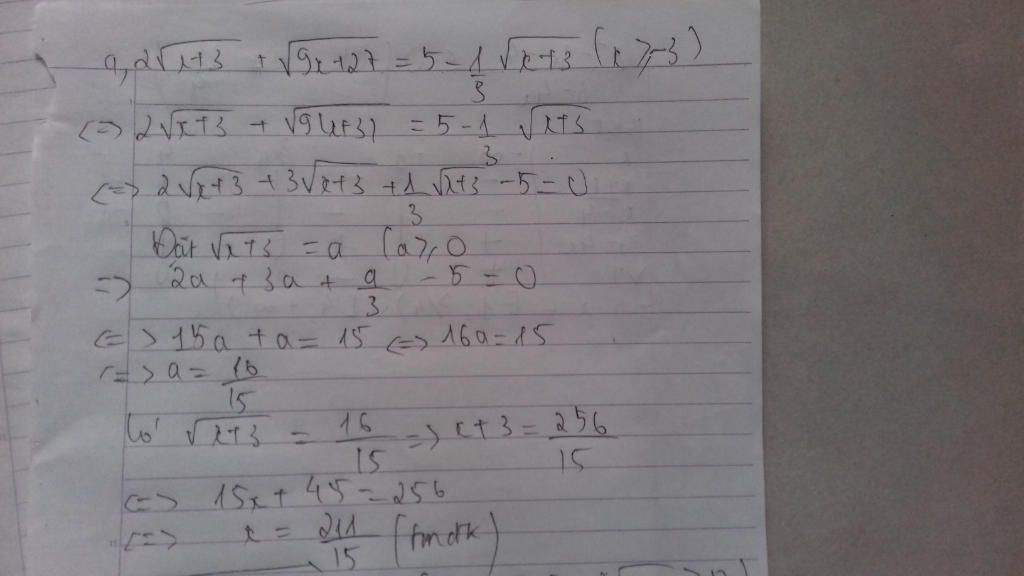 a, 2√(x+3) + √(9x+27) = 5 - 1/3 √(x+3) (x ≥ -3)
<=> 2√(x+3) + √(9(x+3)) = 5 - 1/3 √(x+3)
<=> 2√(x+3) + 3√(x+3) + 1/3 √(x+3) - 5 = 0
Đặt √(x+3) = a (a ≥ 0
=> 2a + 3a + a/3 - 5 = 0
<=> 15a + a = 15 <=> 16a = 15
<=> a = 16/15
Có √(x+3) = 16/15 => x+3 = 256/15
<=> 15x + 45 = 256
<=> x = 211/15 (tmđk)